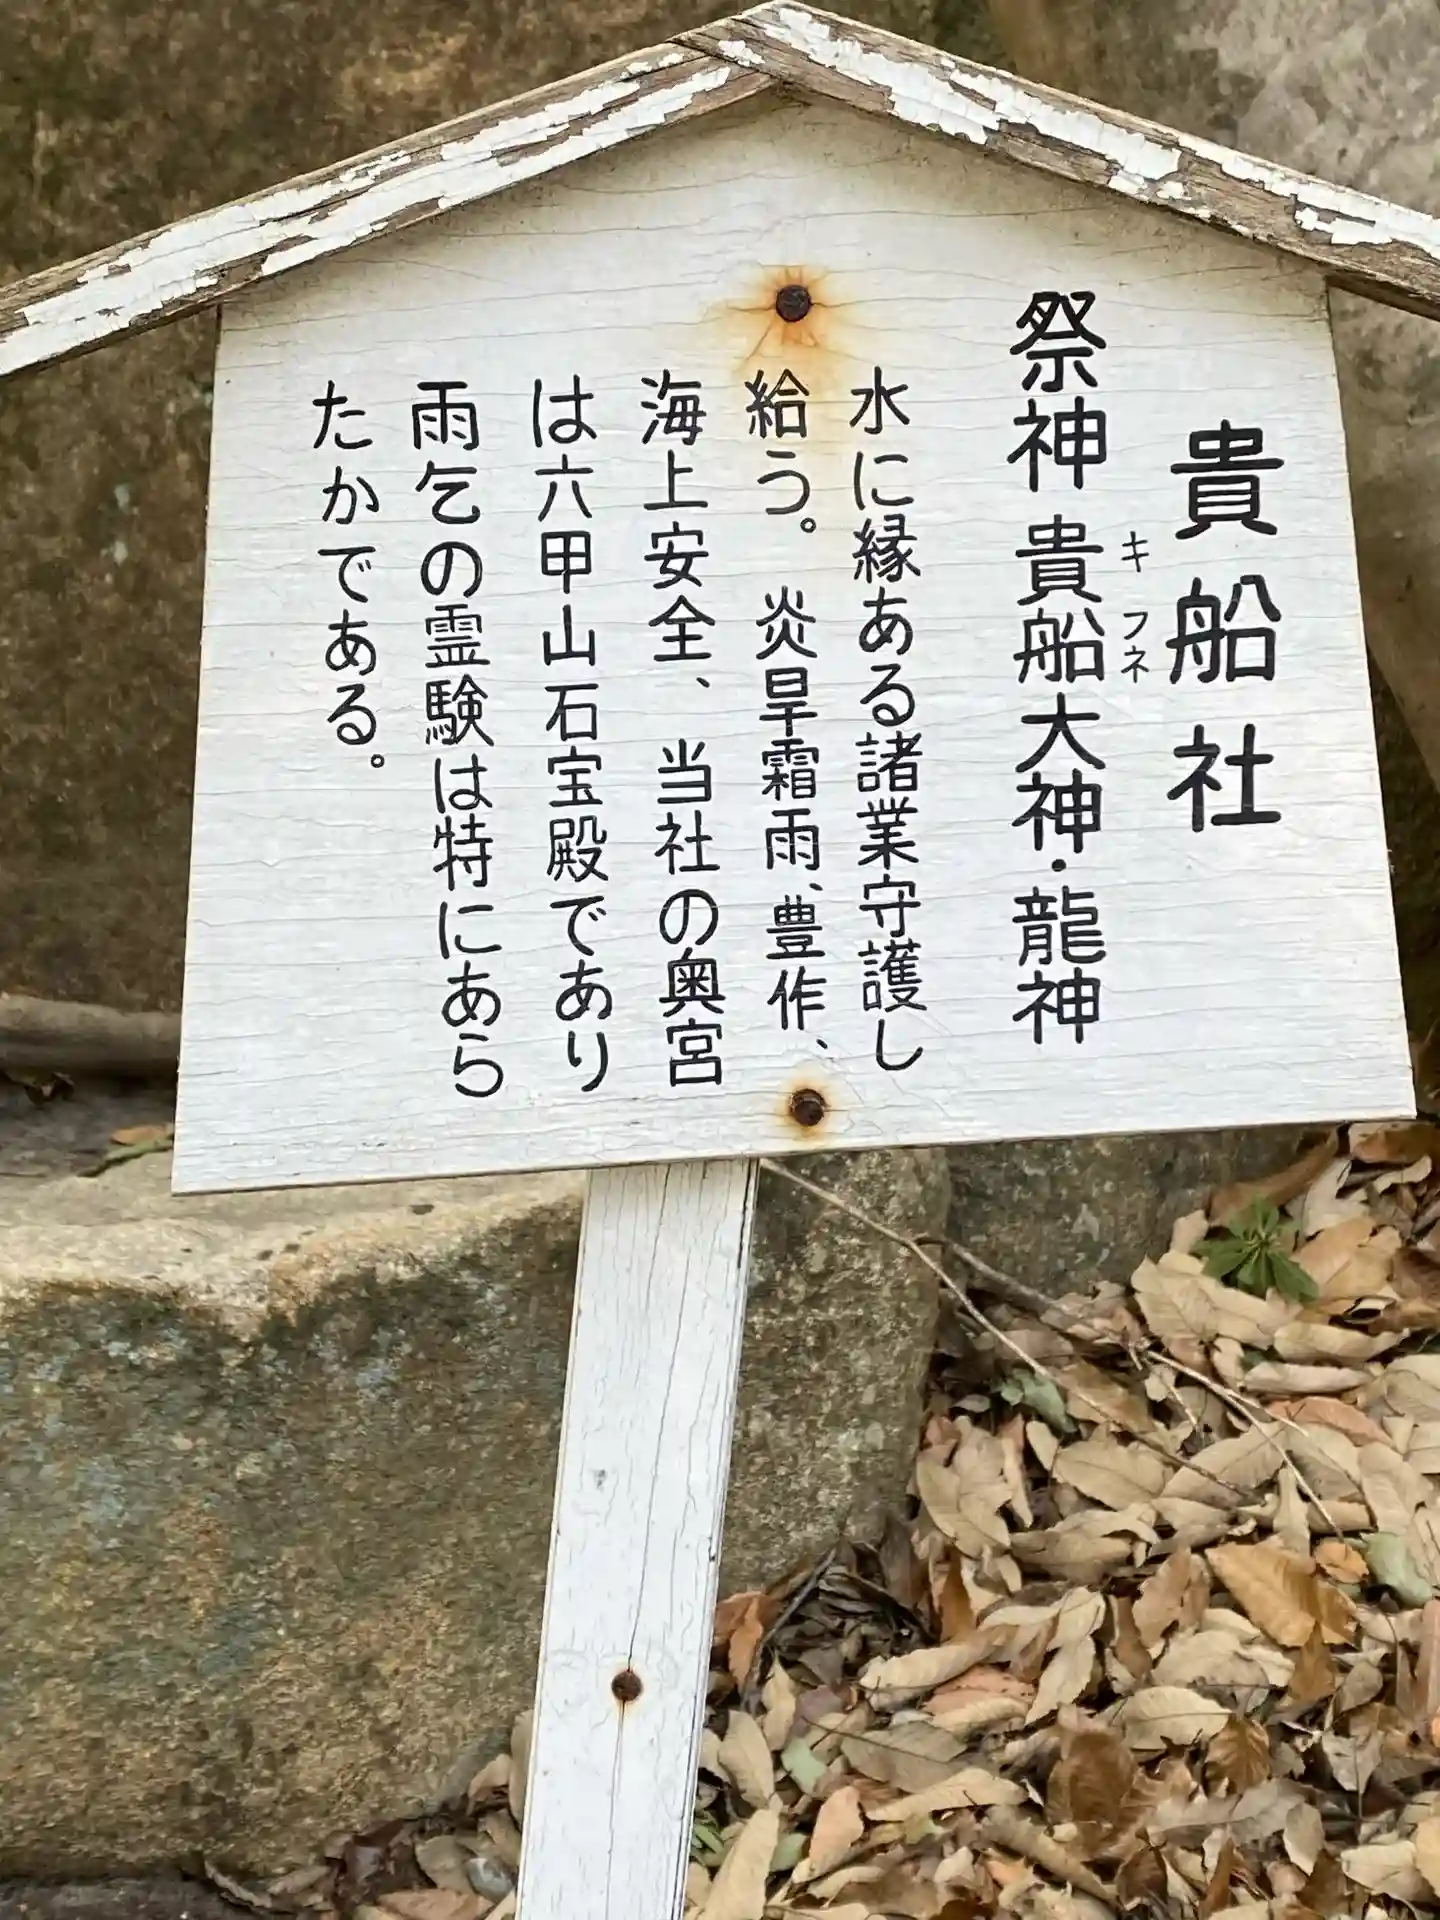 貴船社
祭神 貴船大神・龍神
キフネ
水に縁ある諸業守護し
給う。 炎旱霜雨、豊作、
海上安全、 当社の奥宮
は六甲山石宝殿であり
雨乞の霊験は特にあら
たかである。